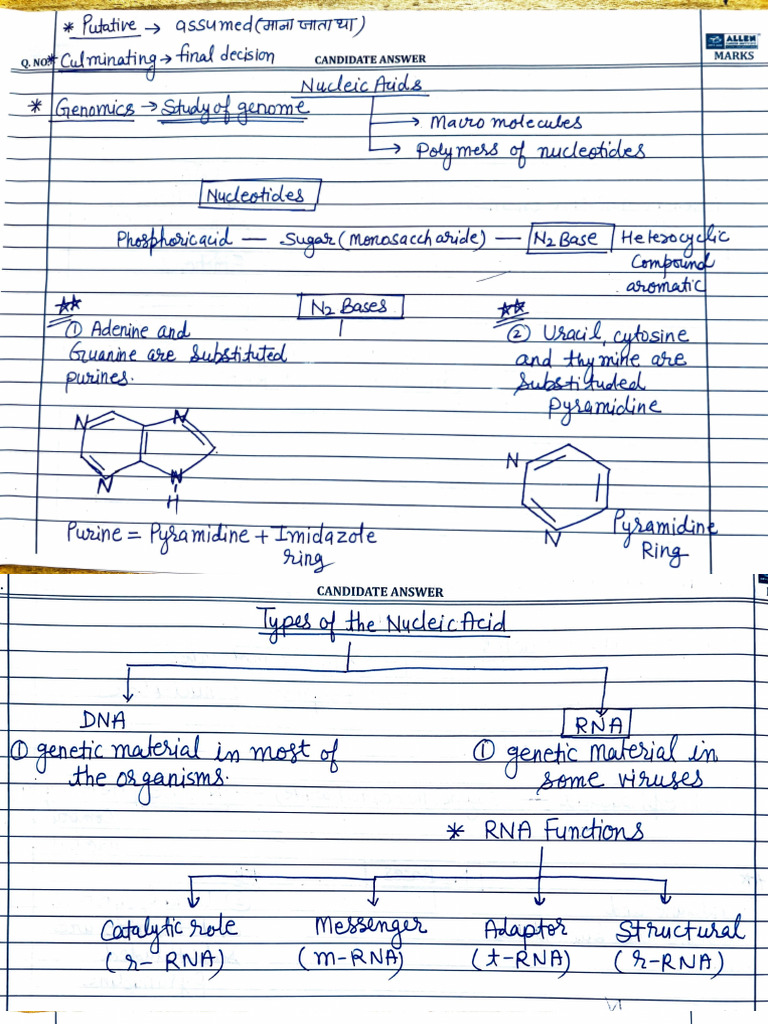 * Putative → assumed (माना जाता था)
ALLEN
Q. NO. * Culminating → final decision CANDIDATE ANSWER MARKS
Nucleic Acids
* Genomics → Study of genome
→ Macro molecules
→ Polymers of nucleotides
Nucleotides
Phosphoric acid — Sugar (monosaccharide) — N2 Base Heterocyclic
Compound
aromatic
N2 Bases
① Adenine and
Guanine are substituted
purines.
② Uracil, cytosine
and thymine are
Substituded
Pyramidine
N N
N N
H
N
N
Purine = Pyramidine + Imidazole
ring
Pyramidine
Ring
CANDIDATE ANSWER
Types of the Nucleic Acid
DNA
① genetic material in most of
the organisms.
RNA
① genetic Material in
some viruses
* RNA Functions
Catalytic role Messenger Adaptor Structural
(r- RNA) (m-RNA) (t-RNA) (r-RNA)